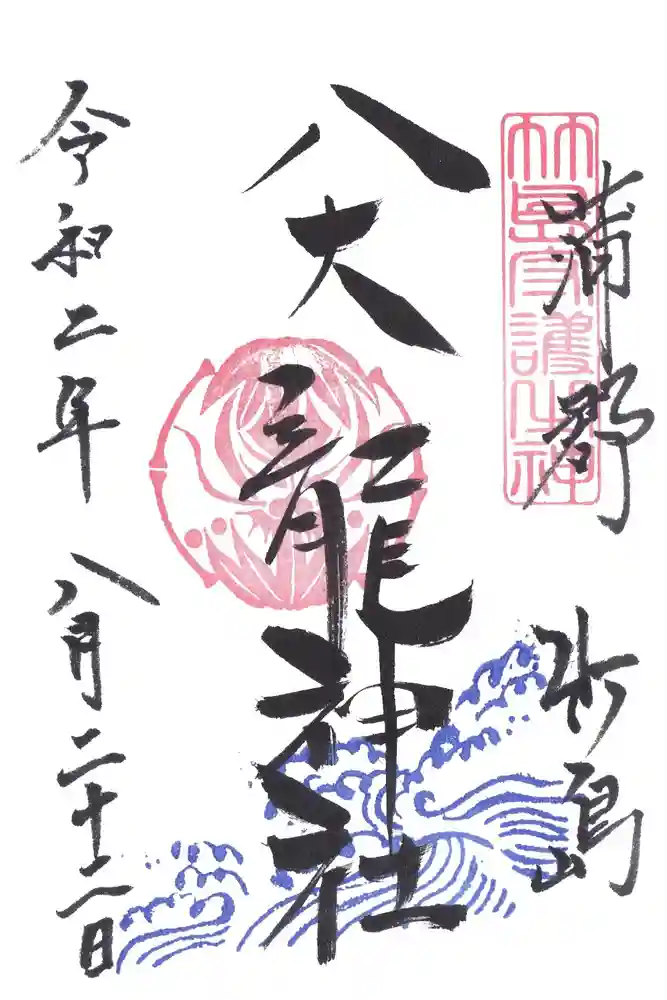 蒲郡
竹島
竹島守護之神
八大龍神社
令和二年
八月二十二日